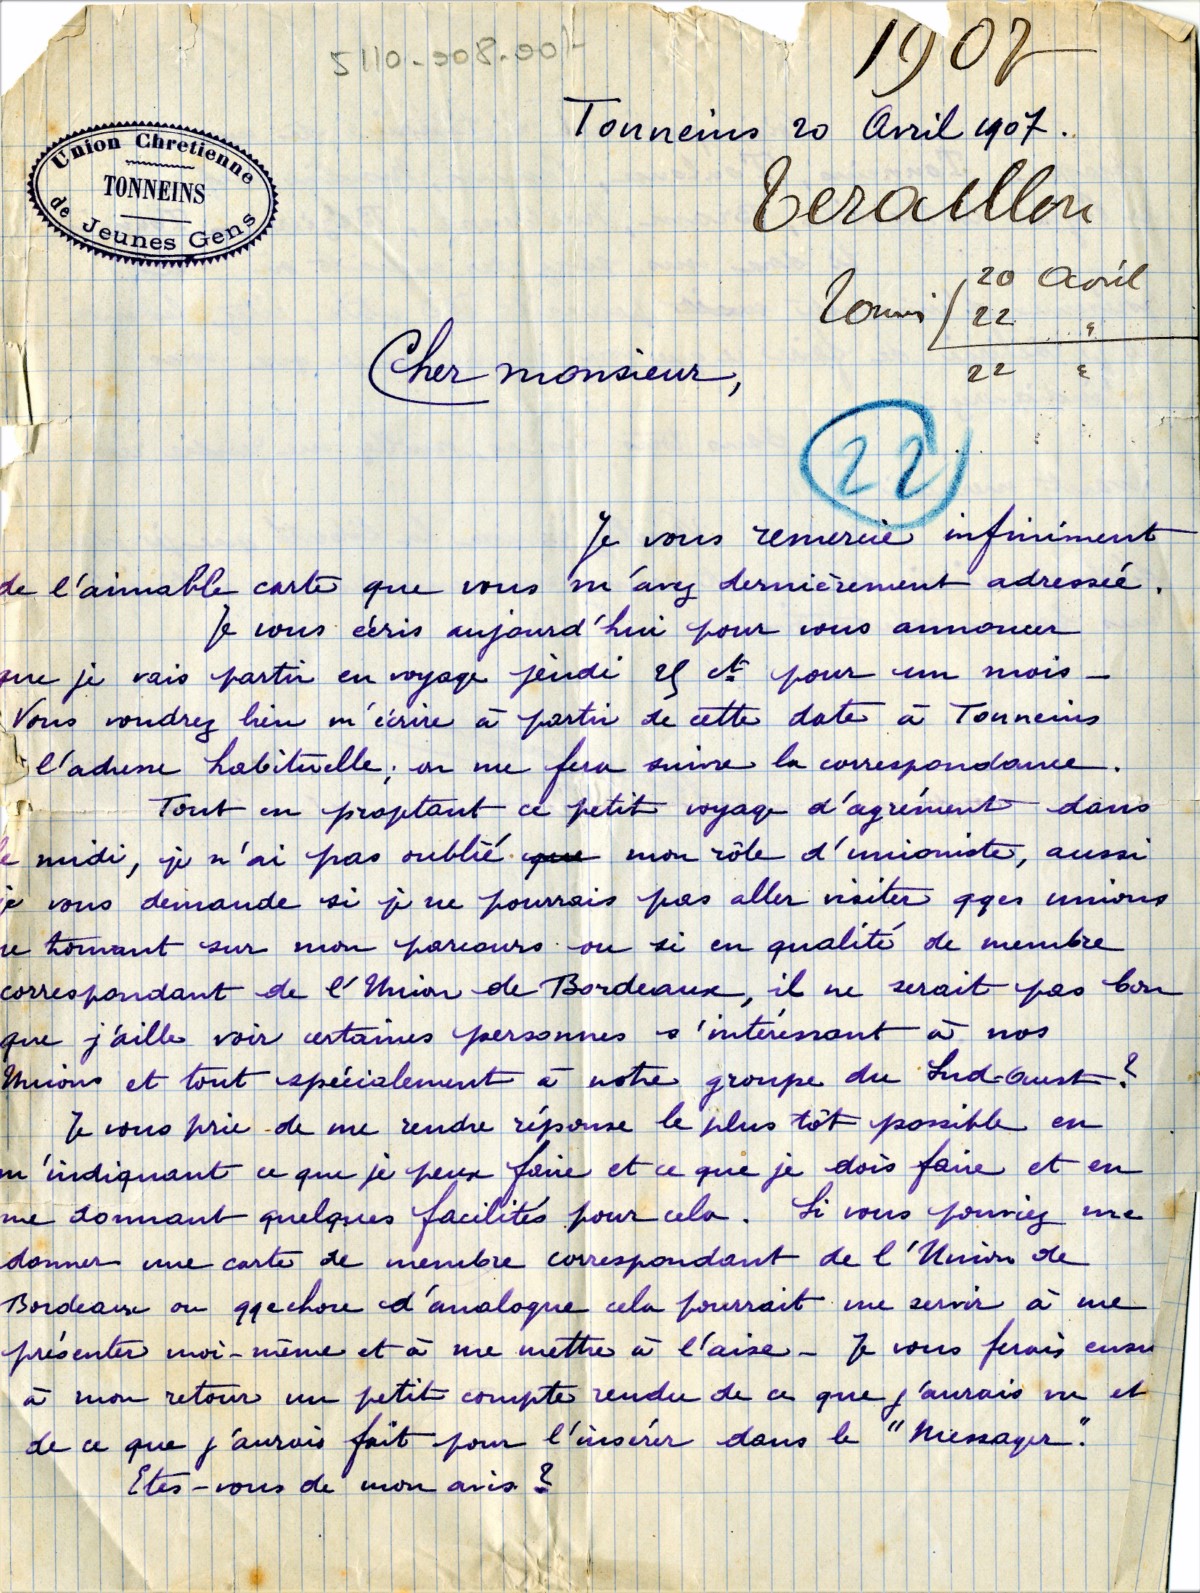 5110-008-007
1907
Tonneins 20 Avril 1907.
Union Chretienne
TONNEINS
de Jeunes Gens
Teraillon
20 Avril
22 "
22 "
Cher monsieur,
22
Je vous remercie infiniment
de l'aimable carte que vous m'avez dernièrement adressée.
Je vous écris aujourd'hui pour vous annoncer
que je vais partir en voyage jeudi 25 ct pour un mois -
Vous voudrez bien m'écrire à partir de cette date à Tonneins
l'adresse habituelle; on me fera suivre la correspondance.
Tout en profitant ce petit voyage d'agrément dans
le midi, je n'ai pas oublié que mon rôle d'unioniste, aussi
je vous demande si je ne pourrais pas aller visiter qqes unions
se trouvant sur mon parcours ou si en qualité de membre
correspondant de l'Union de Bordeaux, il ne serait pas bon
que j'aille voir certaines personnes s'intéressant à nos
Unions et tout spécialement à notre groupe du Sud-Ouest?
Je vous prie de me rendre réponse le plus tôt possible en
m'indiquant ce que je peux faire et ce que je dois faire et en
me donnant quelques facilités pour cela. Si vous pouviez me
donner une carte de membre correspondant de l'Union de
Bordeaux ou qqechose d'analogue cela pourrait me servir à me
présenter moi-même et à me mettre à l'aise - Je vous ferais
à mon retour un petit compte rendu de ce que j'aurais vu et
de ce que j'aurais fait pour l'insérer dans le "Messager".
Etes-vous de mon avis?